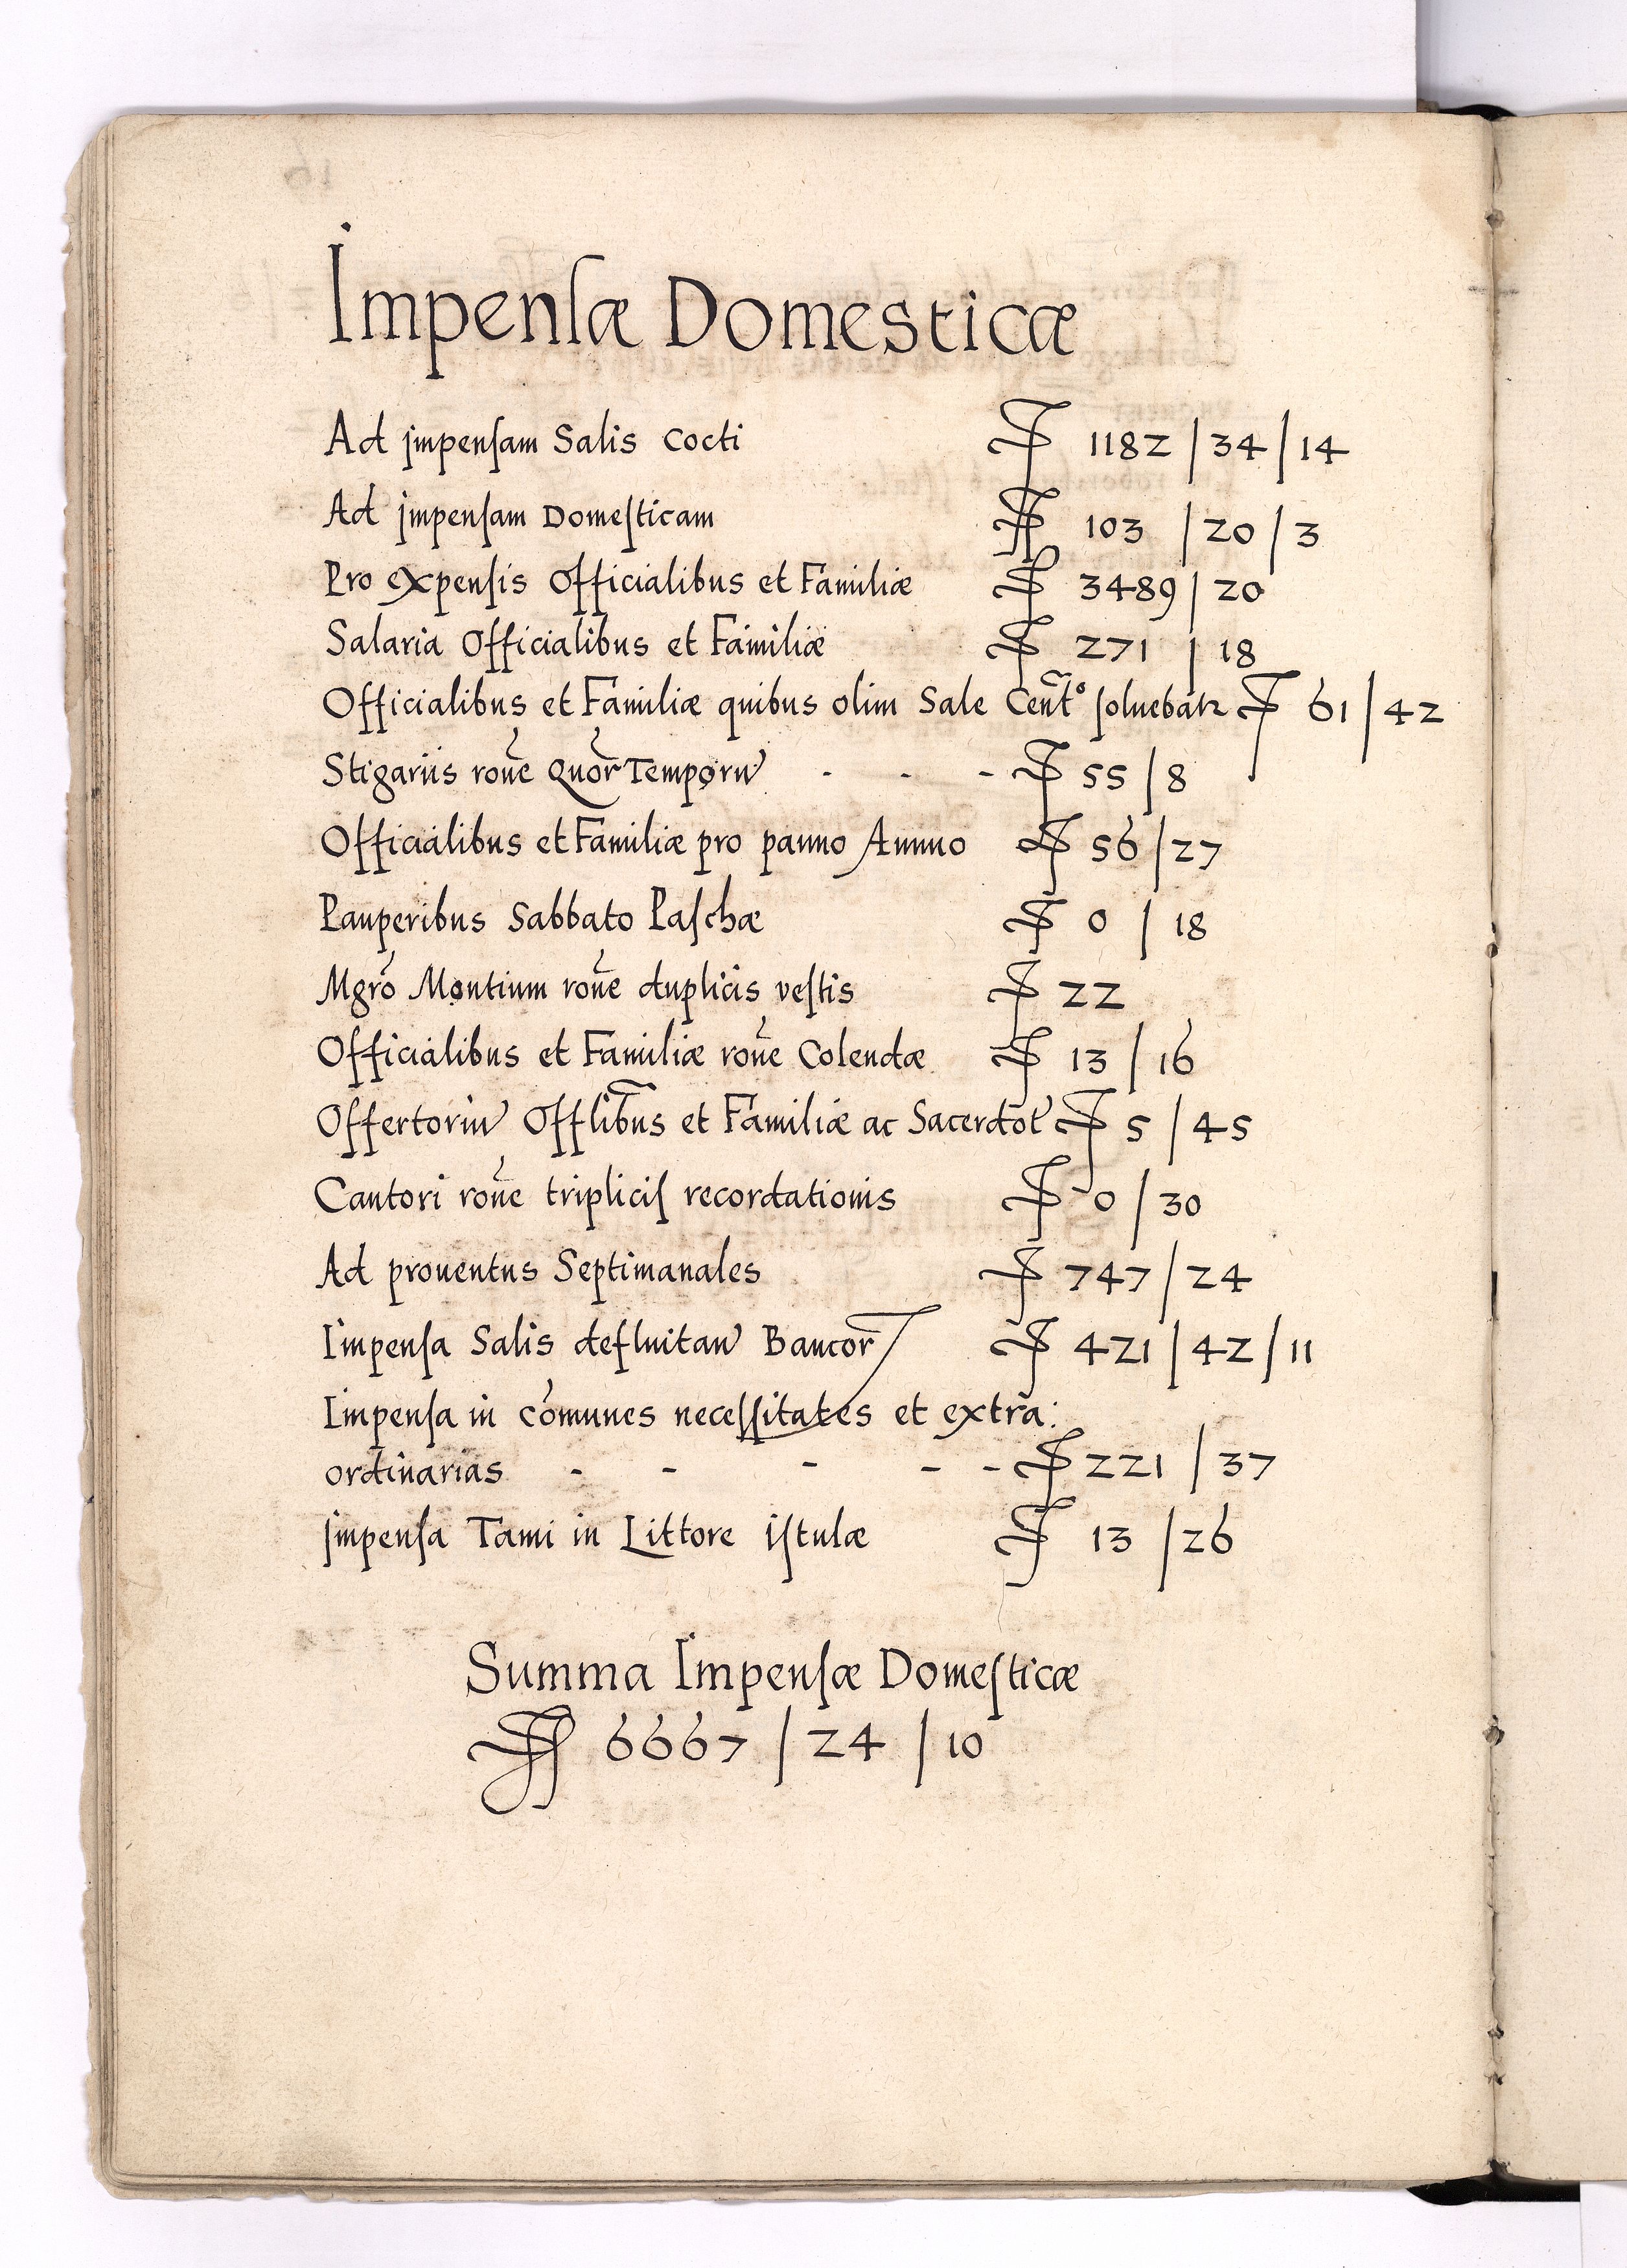 Impensæ Domesticæ
Ad jmpensam Salis Cocti ƒ 1182 / 34 / 14
Ad jmpensam Domesticam ƒ 103 / 20 / 3
Pro expensis Officialibus et Familiæ ƒ 3489 / 20
Salaria Officialibus et Familiæ ƒ 271 / 18
Officialibus et Familiæ quibus olim Sale Cent° soluebatr ƒ 61 / 42
Stigariis roñe Quor Temporu ƒ 55 / 8
Officialibus et Familiæ pro panno Annuo ƒ 56 / 27
Pauperibus Sabbato Paschæ ƒ 0 / 18
Mgro Montium roñe duplicis vestis ƒ 22
Officialibus et Familiæ roñe Colendæ ƒ 13 / 16
Offertoriu Offlibus et Familiæ ac Sacerdot ƒ 5 / 45
Cantori roñe triplicis recordationis ƒ 0 / 30
Ad prouentus Septimanales ƒ 747 / 24
Impensa Salis defluitan Bancor ƒ 421 / 42 / 11
Impensa in cõmunes necessitates et extra:
ordinarias - - - - - ƒ 221 / 37
jmpensa Tami in Littore istulæ ƒ 13 / 26
Summa Impensæ Domesticæ
ƒ 6667 / 24 / 10